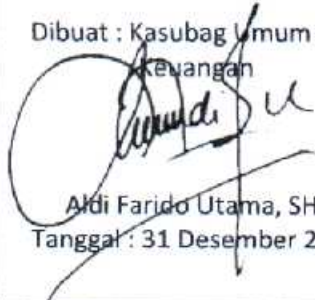 Dibuat : Kasubag Umum
Keuangan
Aldi Farido Utama, SH
Tanggal : 31 Desember 2